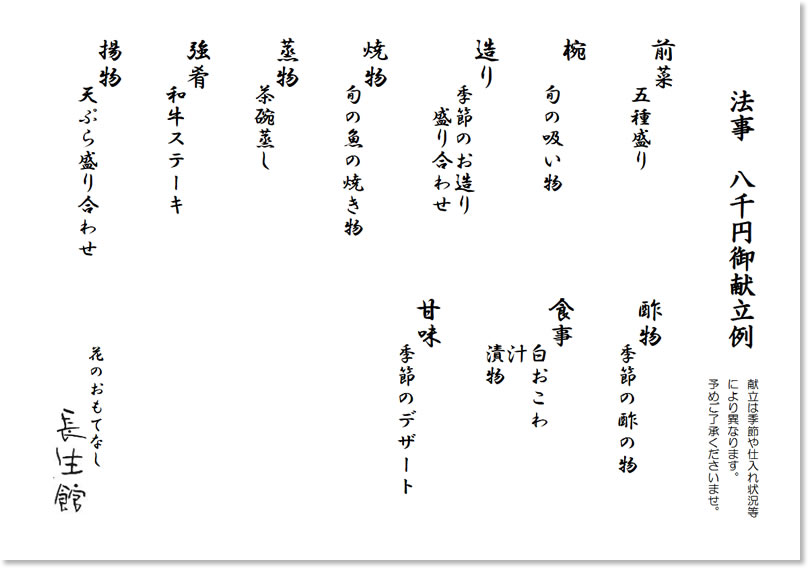 法事　八千円御献立例
献立は季節や仕入れ状況等
により異なります。
予めご了承くださいませ。
前菜
五種盛り
椀
旬の吸い物
造り
季節のお造り
盛り合わせ
焼物
旬の魚の焼き物
蒸物
茶碗蒸し
強肴
和牛ステーキ
揚物
天ぷら盛り合わせ
酢物
季節の酢の物
食事
白おこわ
汁
漬物
甘味
季節のデザート
花のおもてなし
長生館